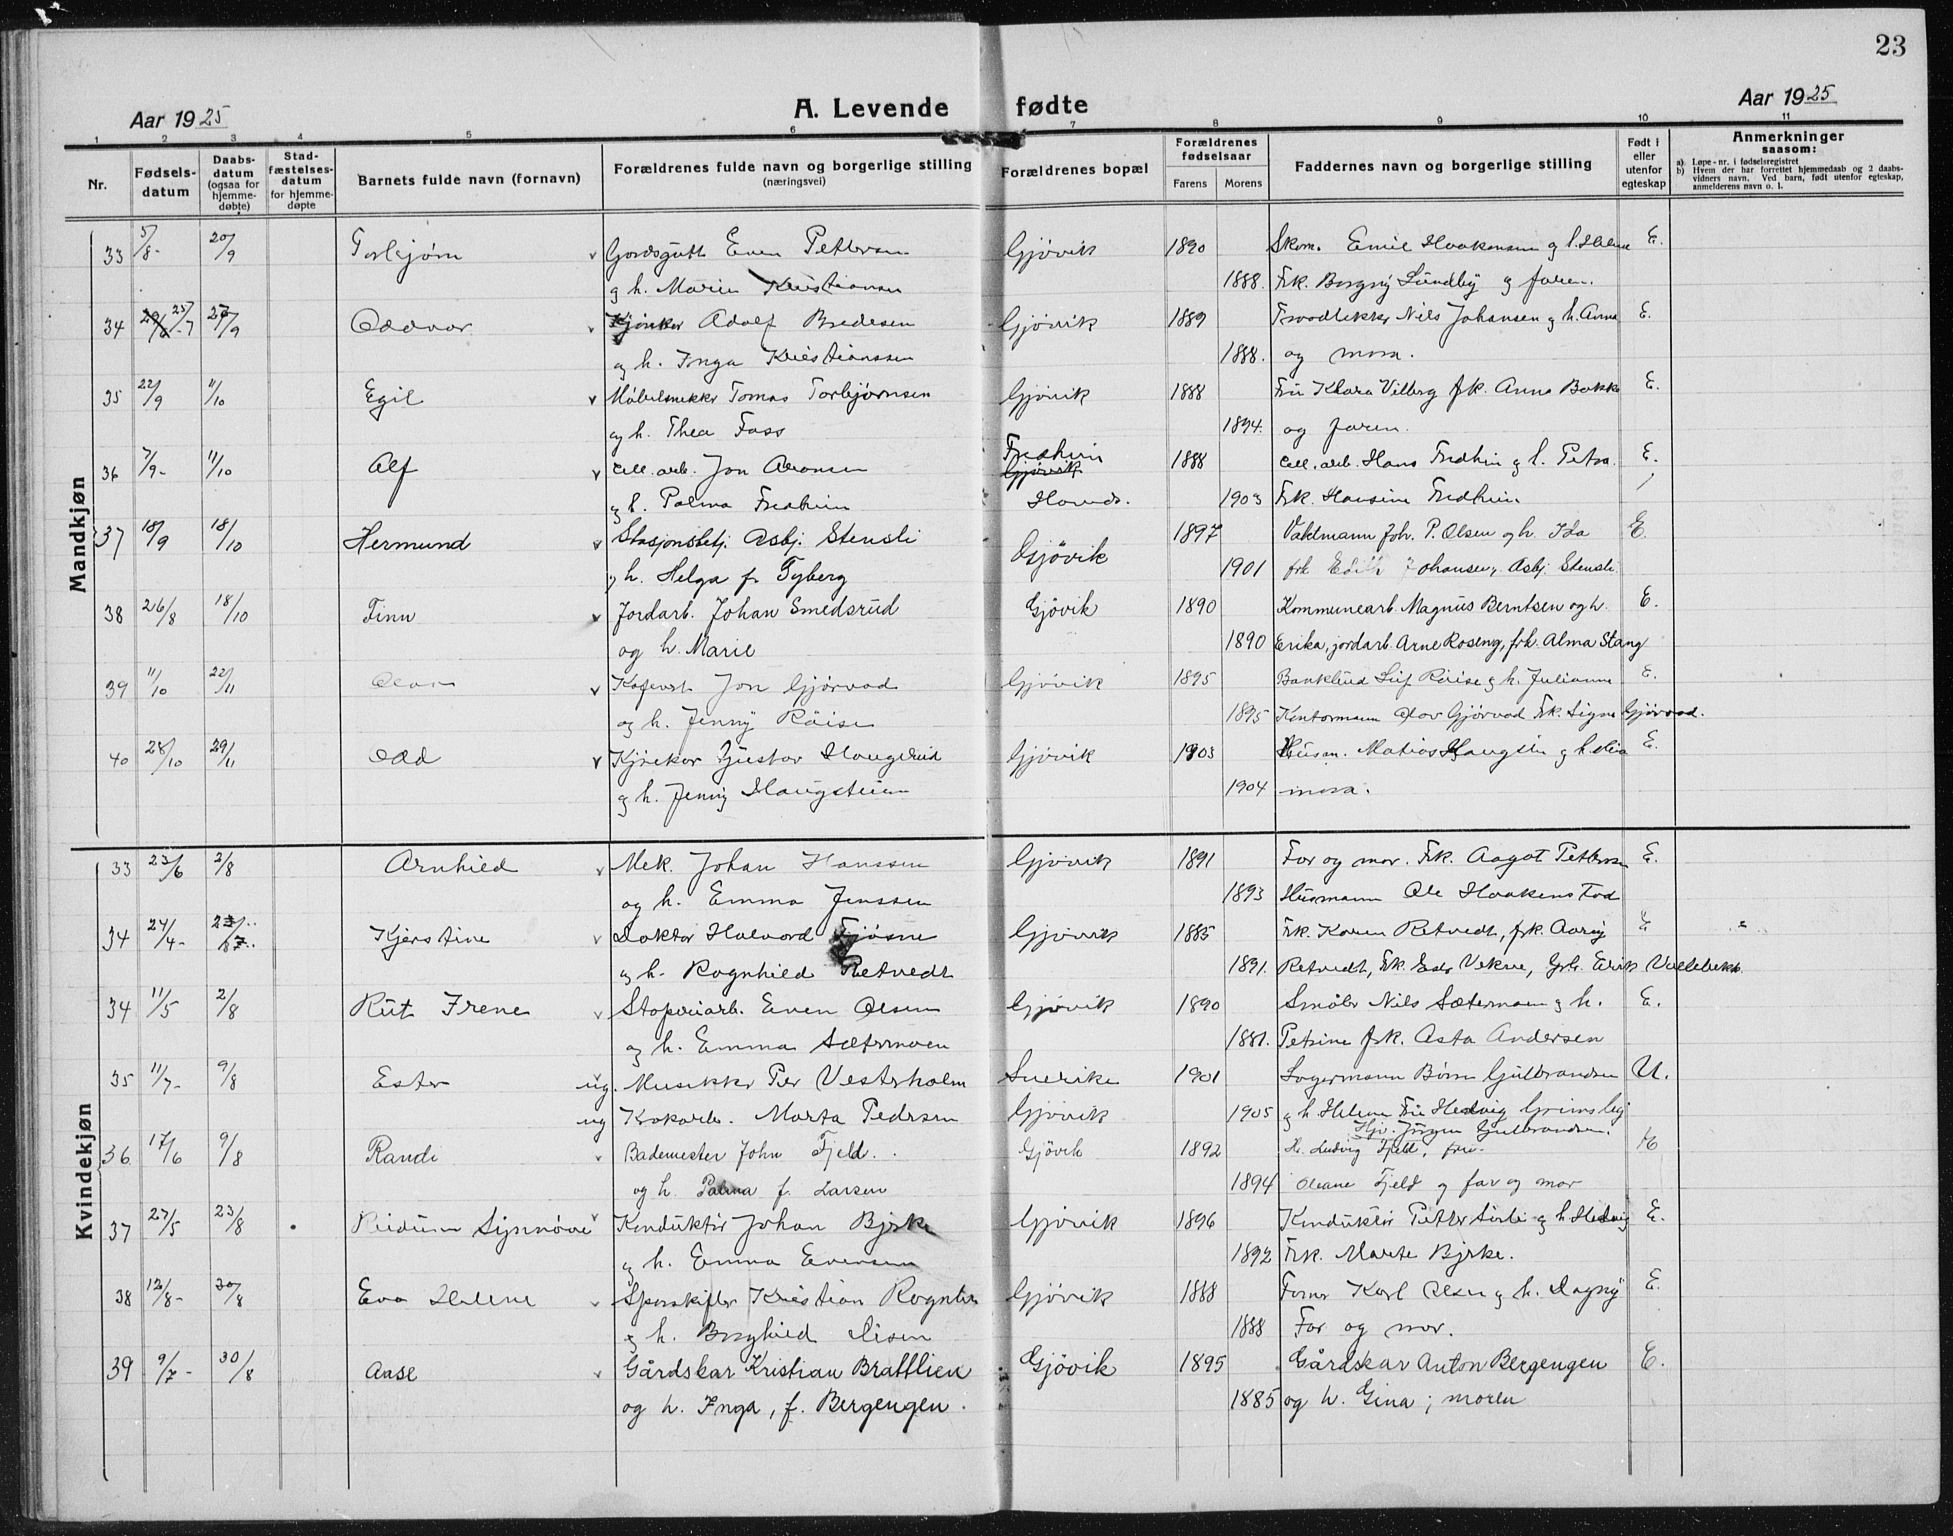 23
Aar 1925
A. Levende fødte
Aar 1925
1 2 3 4 5 6 7 8 9 10 11
Nr.
Fødsels-
datum
Daabs-
datum
(ogsaa for
hjemme-
døbte)
Stad-
fæstelses-
datum
for hjemme-
døpte
Barnets fulde navn (fornavn)
Forældrenes fulde navn og borgerlige stilling
(næringsvei)
Forældrenes bopæl
Forældrenes
fødselsaar
Farens Morens
Faddernes navn og borgerlige stilling
Født i
eller
utenfor
egteskap
Anmerkninger
saasom:
a). Løpe-nr. i fødselsregistret
b) Hvem der har forrettet hjemmedaab og 2 daabs-
vidners navn. Ved barn, født utenfor egteskap,
anmelderens navn o. l.
Mandkjøn
33 5/8- 20/9 Torbjørn v Gordsgutt Even Pettersen Gjøvik 1890 Skom. Emil Haakensen g h. Helene E.
g h. Marie Kristiansen 1888. Frk. Borgny Lundby g faren.
34 25/7 27/9 Oddvar v Kjørekar Adolf Bredesen Gjøvik 1889 Nils Johansen g h. Anna E.
og h. Inga Kristianssen 1888. og mora.
35 22/9 11/10 Egil v Møbelsnekker Tomas Torbjørnsen Gjøvik 1888 Fru Klara Vilberg frk. Anna Bakke E.
og h. Thea Foss 1894. og faren.
36 7/9- 11/10 Alf v cell. arb. Jon Aronsen Fredheim 1888 cell. arb. Hans Fredheim g h. Petra. E.
Gjøvik
g h. Palma Fredheim Hunds. 1903 Frk. Hansine Fredheim
37 18/9 18/10 Hermund v Stasjonsbetj. Asbj. Stensli Gjøvik 1897 Vaktmann Joh. P. Olsen og h. Ida E.
g h. Helga f. Tyberg 1901 frk Edith Johansen, Asbj. Stensli.
38 26/8 18/10 Finn v Jordarb. Johan Smedsrud Gjövik 1890 Kommunearb. Magnus Berntsen og h. E.
og h. Marie 1890 Erika, jordarb. Arne Roseng, frk. Alma Stang
39 11/10 22/11 Olav v Kafevert Jon Gjørvad Gjøvik 1895 Leif Röise g h. Julianne E.
og h. Jenny Röise 1895 Kontormann Olav Gjørvad Frk. Signe Gjørvad.
40 28/10 29/11 Odd v Kjørekar Gustav Haugerud Gjøvik 1903 Husm. Matias Haugstein g h. E.
g h. Jenny Haugsteien 1904 mora.
Kvindekjøn
33 23/6 2/8 Arnhild v Mek. Johan Hanssen Gjøvik 1891 Far og mor. Frk. Aagot Pettersen E.
og h. Emma Jenssen 1893 Husmann Ole Haakenstad
34 24/4- Kjerstine v Doktor Halvord Fjøsne Gjøvik 1885 Frk. Karen Retvedt, frk. Aasny E
g h. Ragnhild Retvedt 1891. Retvedt, Frk. Vekve, Grb. Erik
34 11/5 2/8 Rut Irene v Støperiarb. Even Olsen Gjøvik 1890 Smølr Nils Sætermoen g h. E.
og h. Emma Sætermoen 1881. Petrine frk. Asta Andersen
35 11/7- 9/8 Ester ug. Musikker Per Vesterholm Sverike 1901 Lagermann Børre Gulbrandsen U.
ug Kokearb. Marta Pedersen Gjøvik 1905 g h Helene Fru Hedvig Grimsby
Hjv. Jörgen Gulbrandsen.
36 17/6 9/8 Randi v Bademester John Fjeld. Gjövik 1892 H. Ludvig Fjeld, fru E
og h. Palma f. Larsen 1894 Oleane Fjeld g far og mor
37 27/5 23/8 Reidunn Synnøve v Konduktör Johan Bjrke Gjøvik 1896 Konduktör Petter Sörli g h. Hedvig E.
g h. Emma Evensen 1892 Frk. Marte Bjrke.
38 12/8- 30/8 Eva Helene v Sporskifter Kristian Rognli Gjøvik 1888 Karl Olsen g h. Dagny E.
g h. Borghild Olsen 1888 Far og mor.
39 9/7- 30/8 Aase v Gårdskar Kristian Brattlien Gjøvik 1895 Gårdskar Anton Bergengen E.
og h. Inga, f. Bergengen. 1885 og h. Gina; moren